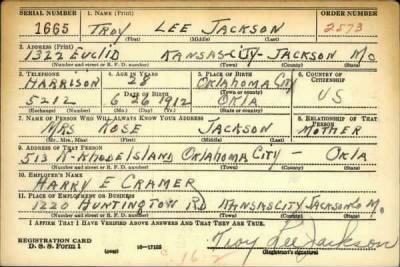 SERIAL NUMBER 1. NAME (Print) ORDER NUMBER
1665 TROY LEE JACKSON 2573
(First) (Middle) (Last)
2. ADDRESS (Print)
1322 EUCLID KANSAS CITY - JACKSON MO
(Number and street or R. F. D. number) (Town) (County) (State)
3. TELEPHONE 4. AGE IN YEARS 5. PLACE OF BIRTH 6. COUNTRY OF CITIZENSHIP
HARRISON 28 OKLAHOMA CITY
DATE OF BIRTH (Town or county)
5212 6 26 1912 OKLA US
(Exchange) (Number) (Mo.) (Day) (Yr.) (State or country)
7. NAME OF PERSON WHO WILL ALWAYS KNOW YOUR ADDRESS 8. RELATIONSHIP OF THAT PERSON
MRS ROSE JACKSON MOTHER
(Mr., Mrs., Miss) (First) (Middle) (Last)
9. ADDRESS OF THAT PERSON
513 N-RHODE ISLAND OKLAHOMA CITY - OKLA
(Number and street or R. F. D. number) (Town) (County) (State)
10. EMPLOYER'S NAME
HARRY E CRAMER
11. PLACE OF EMPLOYMENT OR BUSINESS
1220 HUNTINGTON RD KANSAS CITY JACKSON MO.
(Number and street or R. F. D. number) (Town) (County) (State)
I AFFIRM THAT I HAVE VERIFIED ABOVE ANSWERS AND THAT THEY ARE TRUE.
REGISTRATION CARD
D. S. S. Form 1 (over) 16-17105 Troy Lee Jackson
(Registrant's signature)